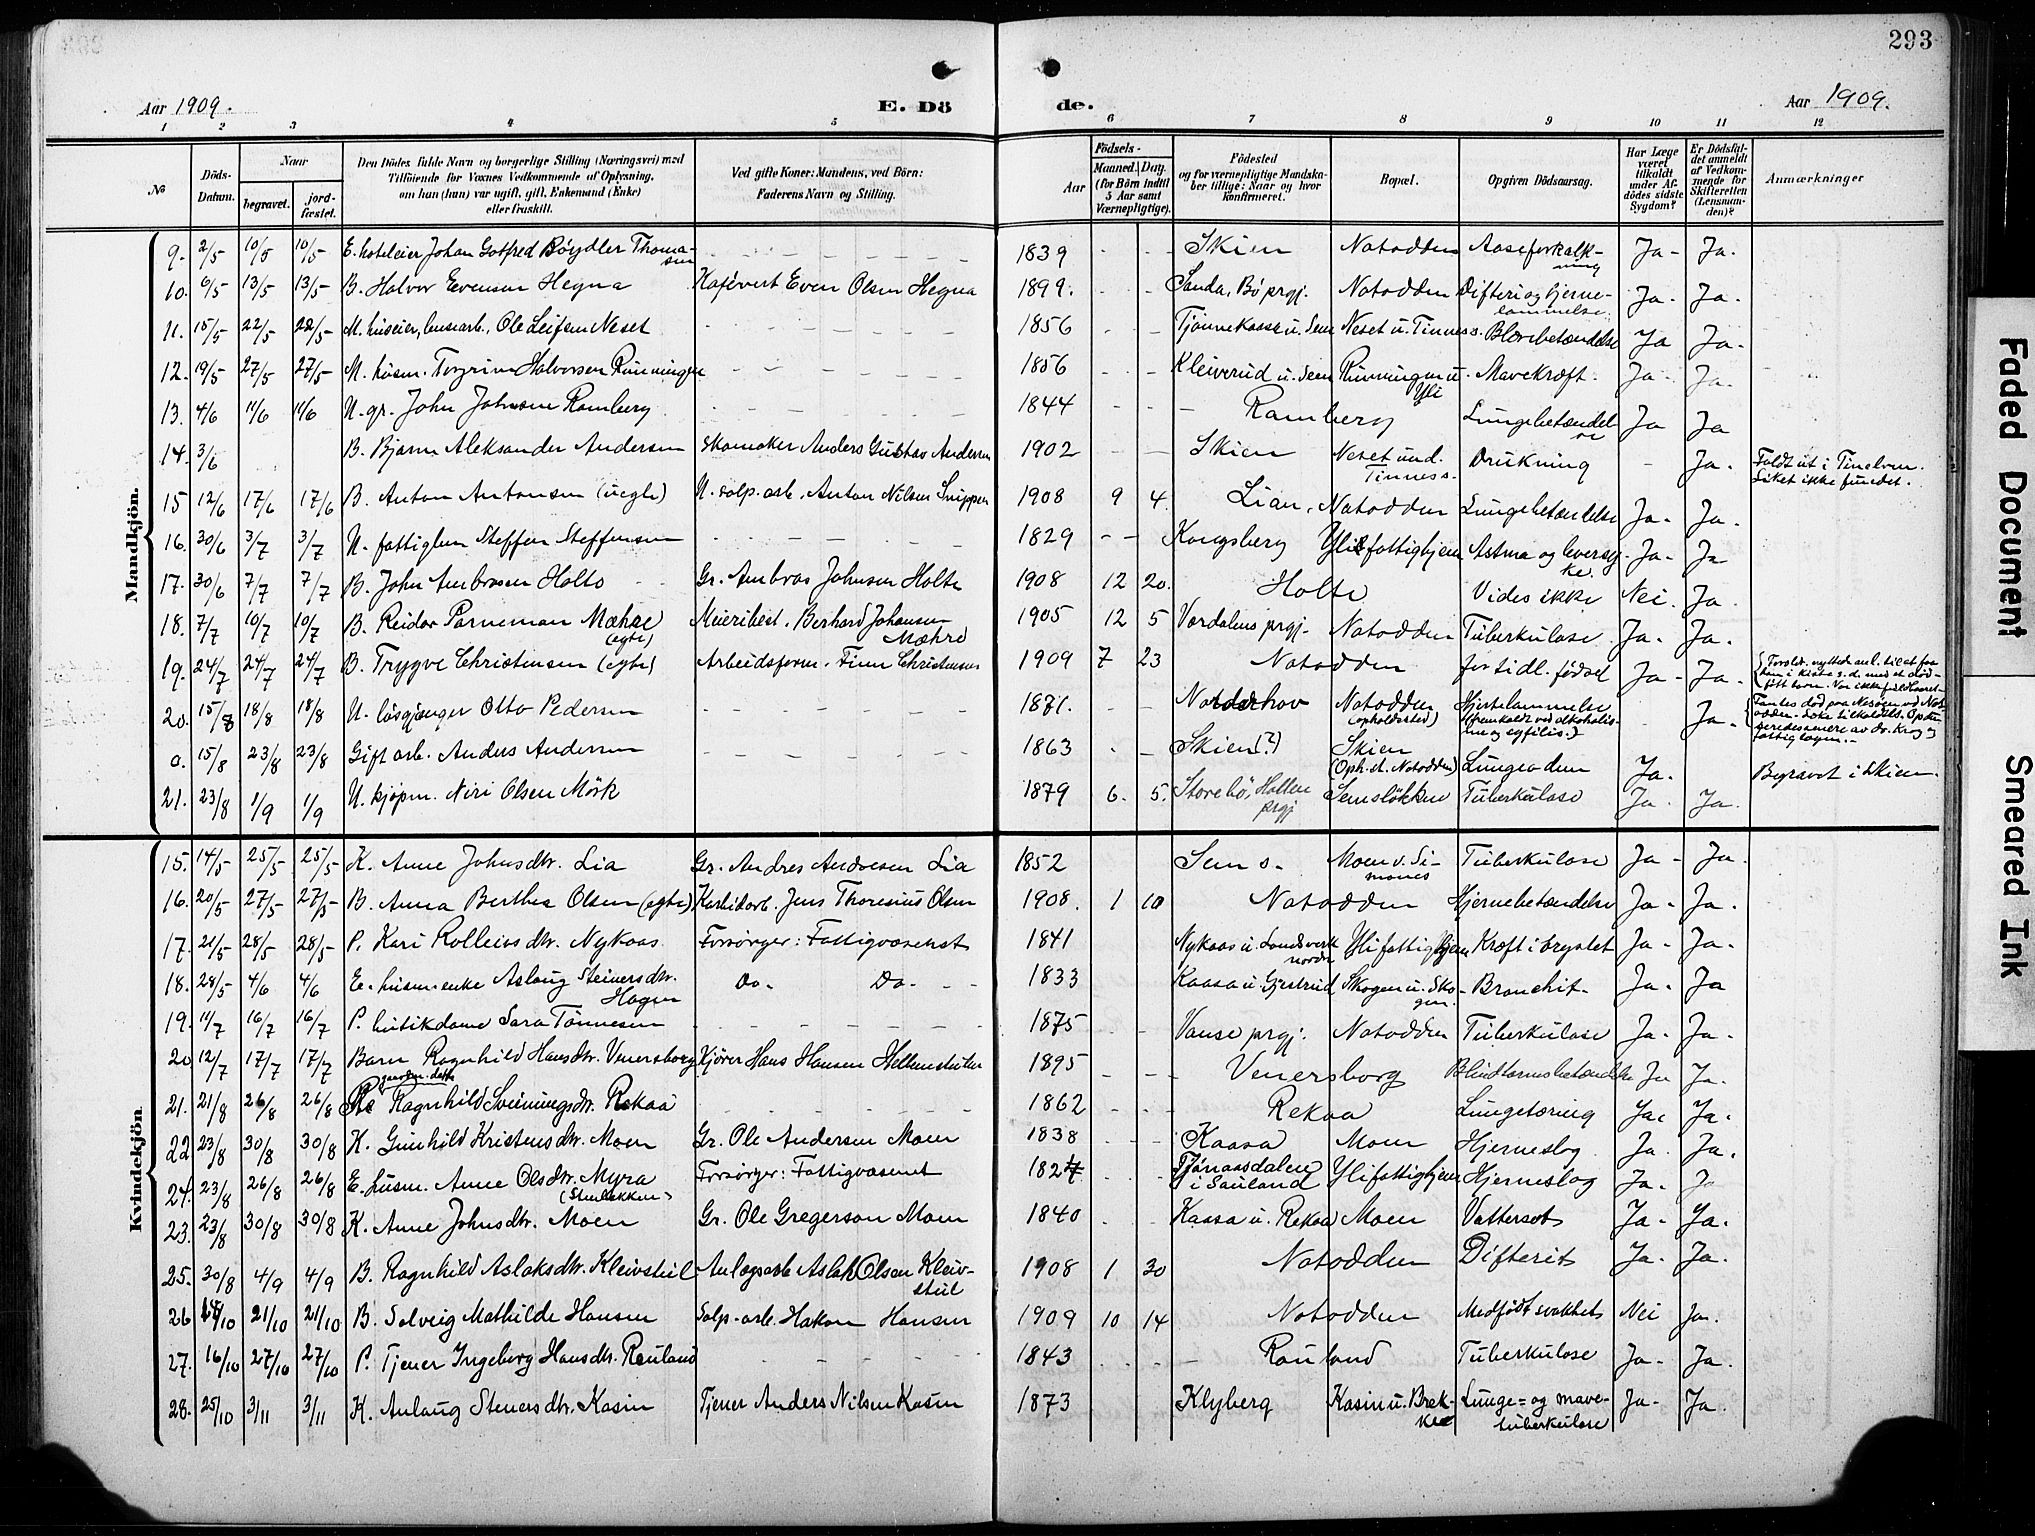 293
Aar 1909. E. Dö de. Aar 1909.
1 2 3 4 5 6 7 8 9 10 11 12
No
Döds-Datum.
Naar
begravet. jordfæstet.
Den Dödes fulde Navn og borgerlige Stilling (Næringsvei) med
Tilföiende for Voxnes Vedkommende af Oplysning,
om han (hun) var ugift, gift, Enkemand (Enke)
eller fraskilt.
Ved gifte Koner: Mandens, ved Börn:
Faderens Navn og Stilling.
Födsels-
Aar Maaned. Dag.
(for Börn indtil
5 Aar samt
Værnepligtige).
Födested
og for værnepligtige Mandskaber tillige: Naar og hvor
konfirmeret.
Bopæl.
Opgiven Dödsaarsag.
Har Læge
været
tilkaldt
under Afdödes sidste
Sygdom?
Er Dödsfaldet anmeldt
af Vedkommende for
Skifteretten
(Lensmanden)?
Anmærkninger
Mandkjön.
9. 2/5 10/5 10/5 E. hoteleier Johan Gotfred Böydler Thomassen 1839 Skien Natodden Aareforkalkning Ja Ja.
10. 6/5 13/5 13/5 B. Halvor Evensen Hegna Kafévert Even Olsen Hegna 1899. Sanda, Bö prgj. Natodden Difteri og hjernelammelse Ja Ja.
11. 15/5 22/5 22/5 M. huseier, Ole Leifsen Neset 1856 Tjønnekaasa u. Sem Neset u. Tinnes Blærebetændelse Ja Ja.
12. 19/5 27/5 27/5 M. husm. Torgrim Halvorsen Rünningen 1856 Kleiverud u. Sem Rünningen u. Yli Mavekræft. Ja Ja.
13. 4/6 11/6 11/6 U. gr. John Johnsen Ramberg 1844 Ramberg Lungebetændelse Ja Ja
14. 3/6 B. Bjarne Aleksander Andersen Skomaker Anders Gustav Andersen 1902 Skien Neset und. Tinness. Drukning - Ja. Faldt ut i Tinelven. Liket ikke fundet.
15 12/6 17/6 17/6 B. Anton Antonsen (uegte) U. salp. arb. Anton Nilsen Snippen 1908 9 4. Lian, Natodden Lungebetændelse Ja Ja.
16. 30/6 3/7 3/7 U. fattiglem Steffen Steffensen 1829 Kongsberg Yli fattighjem Astma og leversyke. Ja Ja
17. 30/6 7/7 7/7 B. John Ambrosen Holte Gr. Ambros Johnsen Holte 1908 12 20. Holte Vides ikke Nei. Ja.
18. 7/7 10/7 10/7 B. Reidar Parneman Mæhre (egte) Meieribest. Berhard Johansen Mæhre 1905 12 5 Værdalens prgj. Natodden Tuberkulose. Ja Ja.
19. 24/7 24/7 24/7 B. Trygve Christensen (egte) Arbeidsform. Finn Christensen 1909 7 23 Natodden for tidl. fødsel Ja Ja.
20. 15/8 18/8 18/8 U. løsgjænger Otto Pedersen 1871. Norderhov Natodden (opholdssted) Hjertelammelse (fremkaldt ved alkoholisme og syfilis.) Ja
a. 15/8 23/8 23/8 Gift arb. Anders Andersen 1863 Skien (?) Skien (Oph. st. Natodden) Lungeødem Ja. Begravet i Skien.
21. 23/8 1/9 1/9 U. kjøpm. Niri Olsen Mörk 1879 6. 5. Storebö, Hollen prgj Semsløkken Tuberkulose Ja Ja.
Kvindekjön.
15. 14/5 25/5 25/5 K. Anne Johnsdtr. Lia Gr. Andres Andresen Lia 1852 Sem s. Moen v. Simones Tuberkulose Ja Ja.
16. 20/5 27/5 27/5 B. Anna Berthea Olsen (egte) Karbidarb. Jens Thoresius Olsen 1908. 1 10 Natodden Hjernebetændelse Ja Ja.
17. 21/5 28/5 28/5 P. Kari Rolleivsdtr. Nykaas Forsørger: Fattigvæsenet 1841 Nykaas u. Landsverk nordre Yli fattighjem Kræft i brystet Ja Ja.
18. 28/5 4/6 4/6 E. husm.enke Aslaug Steinersdtr. Hagen Do. Do. 1833 Kaasa u. Gjestrud Skogen u. Skogen. Bronchit. Ja. Ja
19. 11/7 16/7 16/7 P. butikdame Sara Tönnesen 1875 Vanse prgj. Natodden Tuberkulose Ja. Ja.
20 12/7 17/7 17/7 Barn Ragnhild Hansdtr. Venersborg Kjører Hans Hansen 1895 Venersborg Blindtarmsbetændelse Ja Ja.
21. 21/8 26/8 26/8 gaardm. datter Ragnhild Sveinungsdtr. Rekaa 1862 Rekaa Lungetæring Ja Ja.
22 23/8 30/8 30/8 K. Gunhild Kristensdtr. Moen Gr. Ole Andersen Moen 1838 Kaasa Moen Hjerneslag Ja. Ja.
24. 23/8 26/8 26/8 E. husm. Anne Olsdtr. Myra Forsørger: Fattigvæsenet 1827 Tjønaasdalen i Sauland Yli fattighjem Hjerneslag Ja. Ja
23. 23/8 30/8 30/8 K. Anne Johnsdtr. Moen Gr. Ole Gregersen Moen 1840 Kaasa u. Rekaa Moen Vattersot Ja Ja.
25. 30/8 4/9 4/9 B. Ragnhild Aslaksdtr. Kleivstül Anlægsarb Aslak Olsen Kleivstül 1908 1 30 Natodden Difterit Ja. Ja.
26 14/10 21/10 21/10 B. Solveig Mathilde Hansen Salp. arb. Hakon Hansen 1909 10 14 Natodden Medfödt svakhet Nei Ja.
27. 16/10 27/10 27/10 P. Tjener Ingeborg Hansdtr. Rauland 1843 Rauland Tuberkulose Ja. Ja.
28. 25/10 3/11 3/11 K. Anlaug Stenersdtr. Kasin Tjener Anders Nilsen Kasin 1873 Klyberg Kasin u. Brekke Lunge= og mavetuberkulose Ja Ja.
Faded Document
Smeared Ink